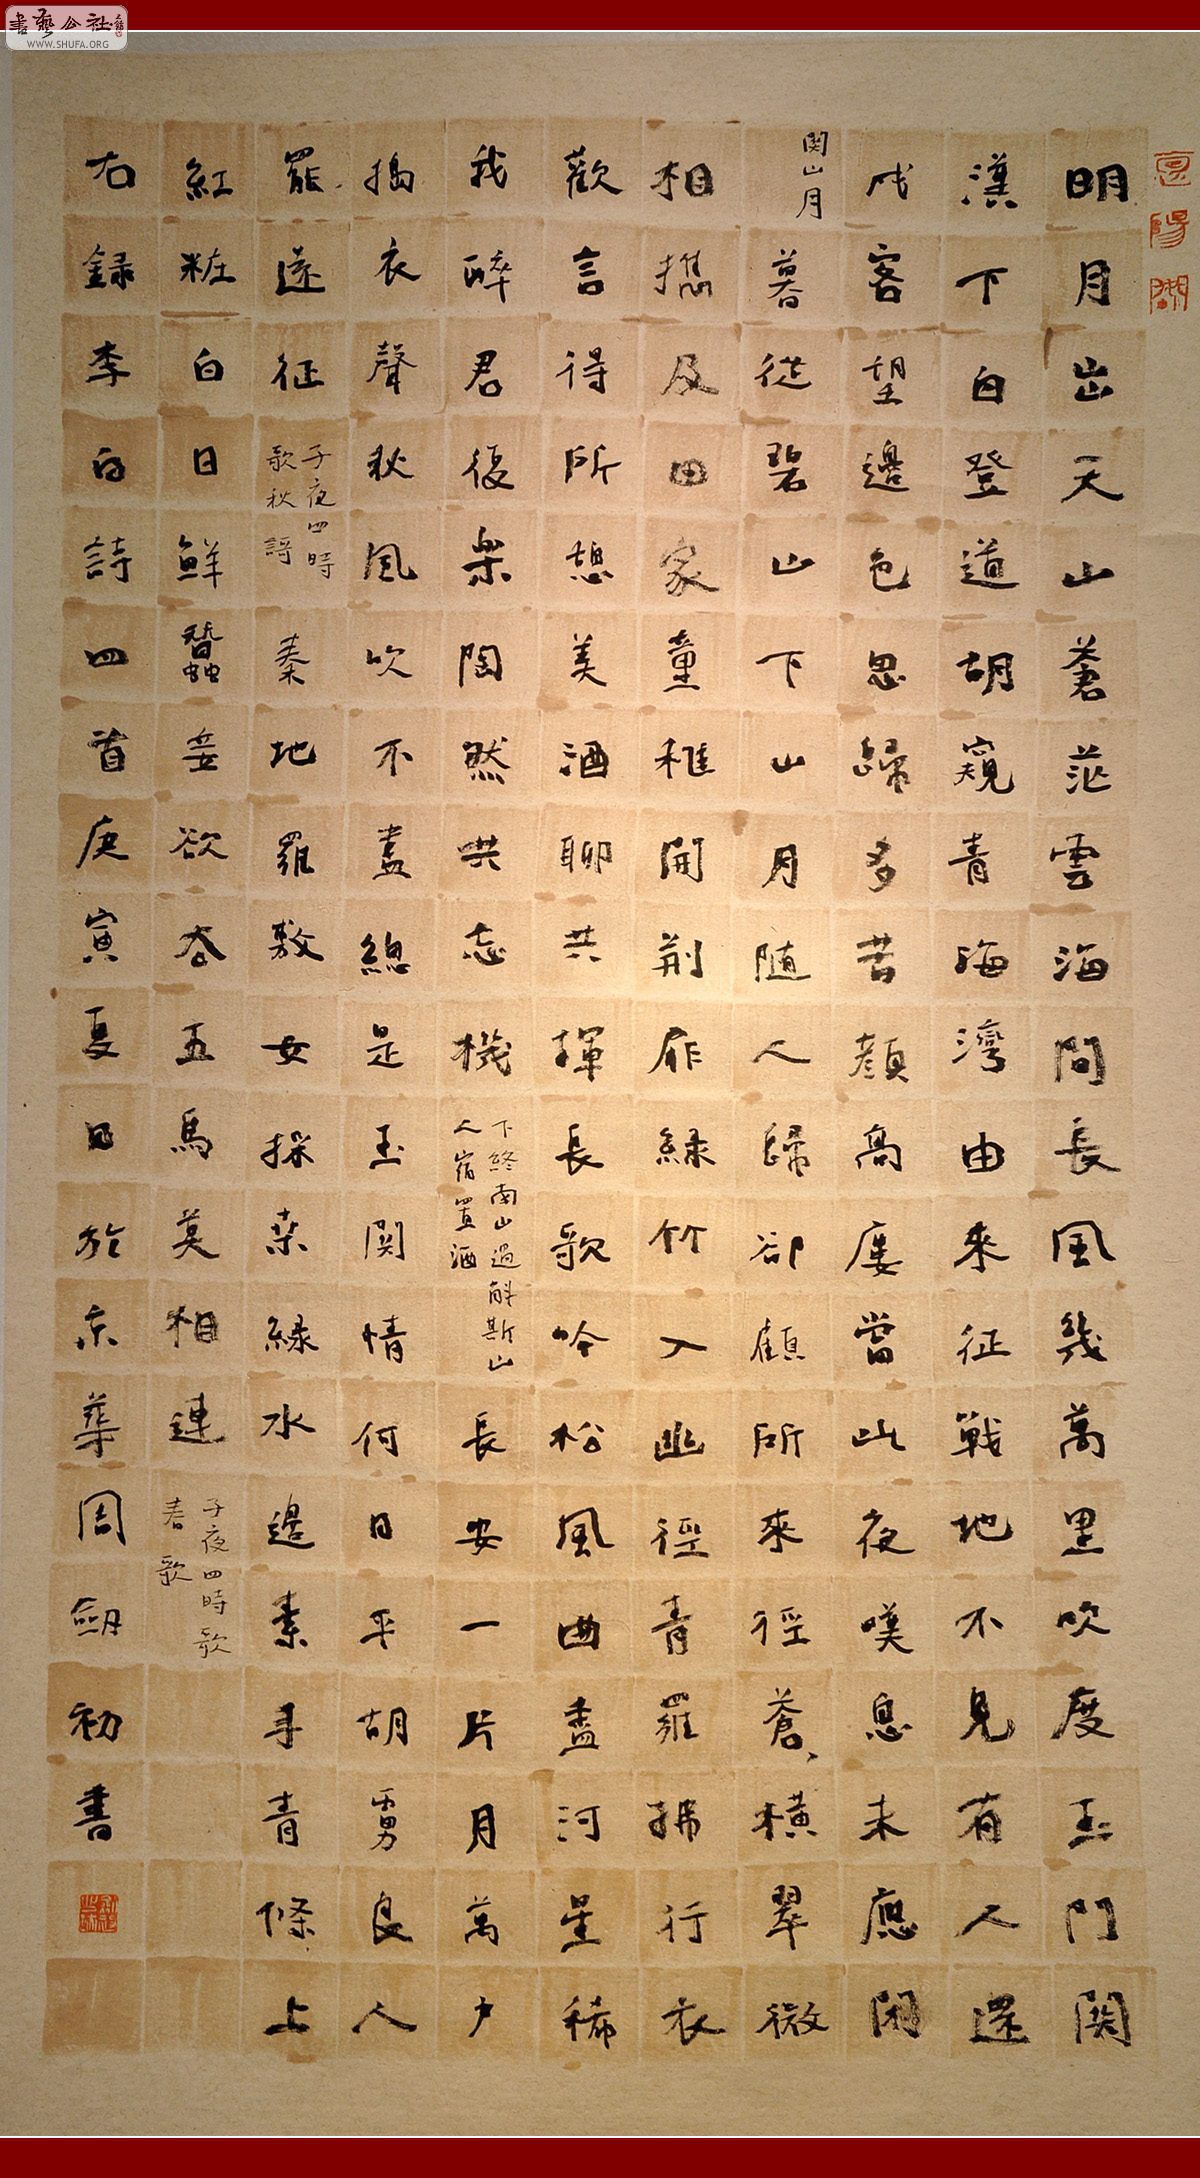 明月出天山蒼茫雲海間長風幾萬里吹度玉門関
漢下白登道胡窺青海灣由來征戰地不見有人還
戍客望邊色思歸多苦顏高廔當此夜嘆息未應閑
関山月
暮從碧山下山月隨人歸卻顧所來徑蒼、橫翠微
相攜及田家童稚開荊扉綠竹入幽徑青羅拂行衣
歡言得所憩美酒聊共揮長歌吟松風曲盡河星稀
我醉君復樂陶然哄忘機
下終南山過斛斯山
人宿置酒
長安一片月萬戶
搗衣聲秋風吹不盡總是玉関情何日平胡虜良人
罷遠征
子夜四時
歌秋謌
秦地羅敷女採桑綠水邊素手青條上
紅粧白日鮮蠶妾欲去五馬莫相連
子夜四時歌
春歌
右錄李白詩四首庚寅夏日於京華周劒初書
書藝公社
WWW.SHUFA.ORG